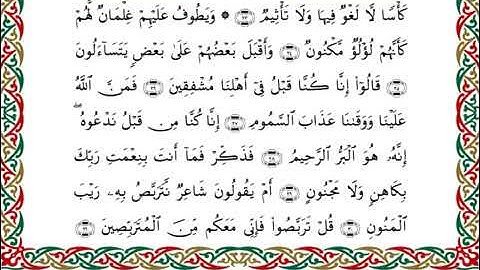 كَأْسًا لَّا لَغْوٌ فِيهَا وَلَا تَأْثِيمٌ ﴿٢٣﴾ ۞ وَيَطُوفُ عَلَيْهِمْ غِلْمَانٌ لَّهُمْ
كَأَنَّهُمْ لُؤْلُؤٌ مَّكْنُونٌ ﴿٢٤﴾ وَأَقْبَلَ بَعْضُهُمْ عَلَىٰ بَعْضٍ يَتَسَآءَلُونَ
﴿٢٥﴾ قَالُوٓا۟ إِنَّا كُنَّا قَبْلُ فِىٓ أَهْلِنَا مُشْفِقِينَ ﴿٢٦﴾ فَمَنَّ ٱللَّهُ
عَلَيْنَا وَوَقَىٰنَا عَذَابَ ٱلسَّمُومِ ﴿٢٧﴾ إِنَّا كُنَّا مِن قَبْلُ نَدْعُوهُ ۖ
إِنَّهُۥ هُوَ ٱلْبَرُّ ٱلرَّحِيمُ ﴿٢٨﴾ فَذَكِّرْ فَمَآ أَنتَ بِنِعْمَتِ رَبِّكَ
بِكَاهِنٍ وَلَا مَجْنُونٍ ﴿٢٩﴾ أَمْ يَقُولُونَ شَاعِرٌ نَّتَرَبَّصُ بِهِۦ رَيْبَ
ٱلْمَنُونِ ﴿٣٠﴾ قُلْ تَرَبَّصُوا۟ فَإِنِّى مَعَكُم مِّنَ ٱلْمُتَرَبِّصِينَ ﴿٣١﴾